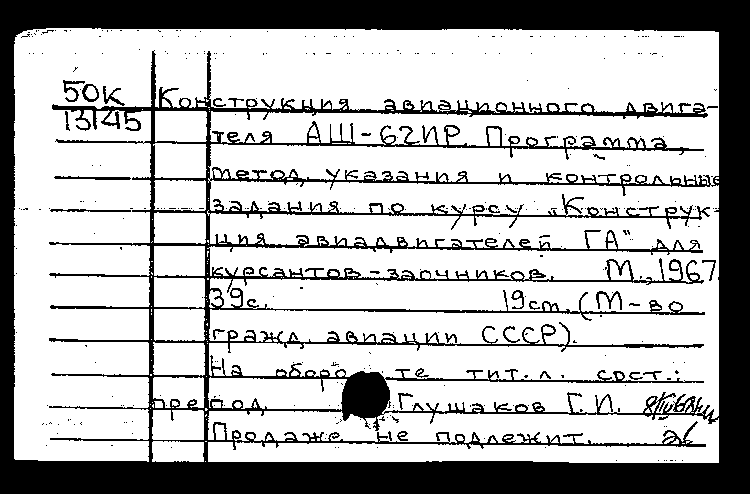 50К Конструкция авиационного двига-
13145
теля АШ-62ИР. Программа,
метод. указания и контрольные
задания по курсу „Конструк-
ция авиадвигателей ГА" для
курсантов-заочников. М., 1967.
39с. 19см. (М-во
гражд. авиации СССР).
На оборо те тит. л. сост.:
препод. Глушаков Г.И.
Продаже не подлежит.